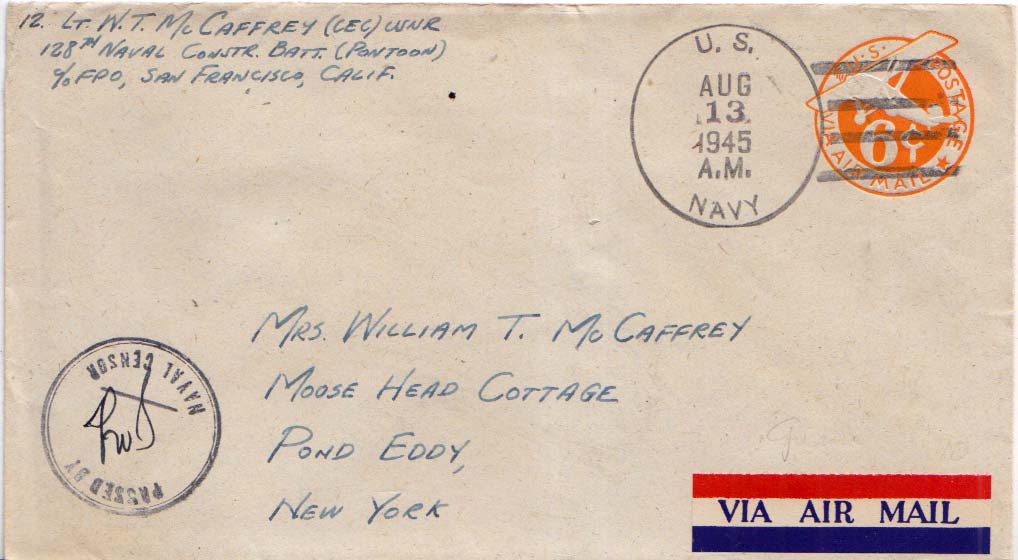 12. Lt. W. T. McCaffrey (CEC) USNR
128TH Naval Constr. Batt. (Pontoon)
c/o FPO, San Francisco, Calif.
U. S.
AUG
13
1945
A.M.
NAVY
U.S. POSTAGE
6¢
VIA AIR MAIL
Mrs. William T. McCaffrey
Moose Head Cottage
Pond Eddy,
New York
PASSED BY
NAVAL CENSOR
VIA AIR MAIL